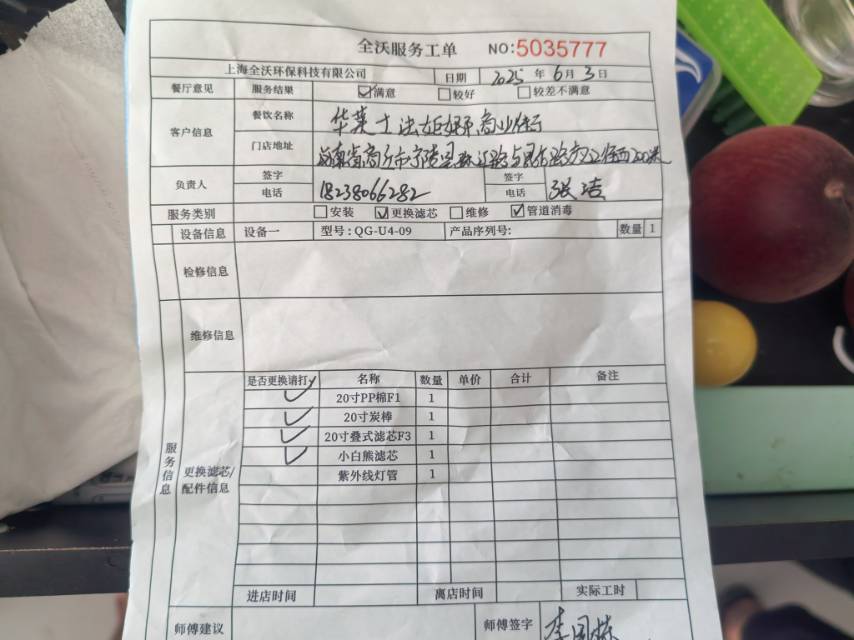 全沃服务工单 NO:5035777
上海全沃环保科技有限公司 日期 2025 年 6 月 3 日
餐厅意见 服务结果 ☑满意 □较好 □较差不满意
客户信息 餐饮名称 华莱士
门店地址
负责人 签字 签字
电话 18238066282 电话 张洁
服务类别 □安装 ☑更换滤芯 □维修 ☑管道消毒
设备信息 设备一 型号:QG-U4-09 产品序列号: 数量 1
检修信息
维修信息
服务信息
更换滤芯/配件信息
是否更换请打✓ 名称 数量 单价 合计 备注
✓ 20寸PP棉F1 1
✓ 20寸炭棒 1
✓ 20寸叠式滤芯F3 1
✓ 小白熊滤芯 1
紫外线灯管 1
进店时间 离店时间 实际工时
师傅建议 师傅签字